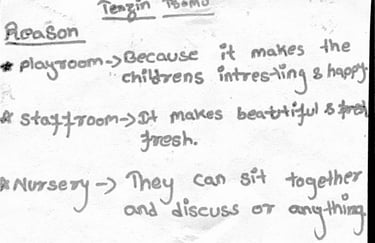 Tenzin Tsomo
Reason
* Playroom -> Because it makes the
childrens intresting & happy.
* Staffroom -> It makes beautiful &
fresh.
* Nursery -> They can sit together
and discuss or anything.